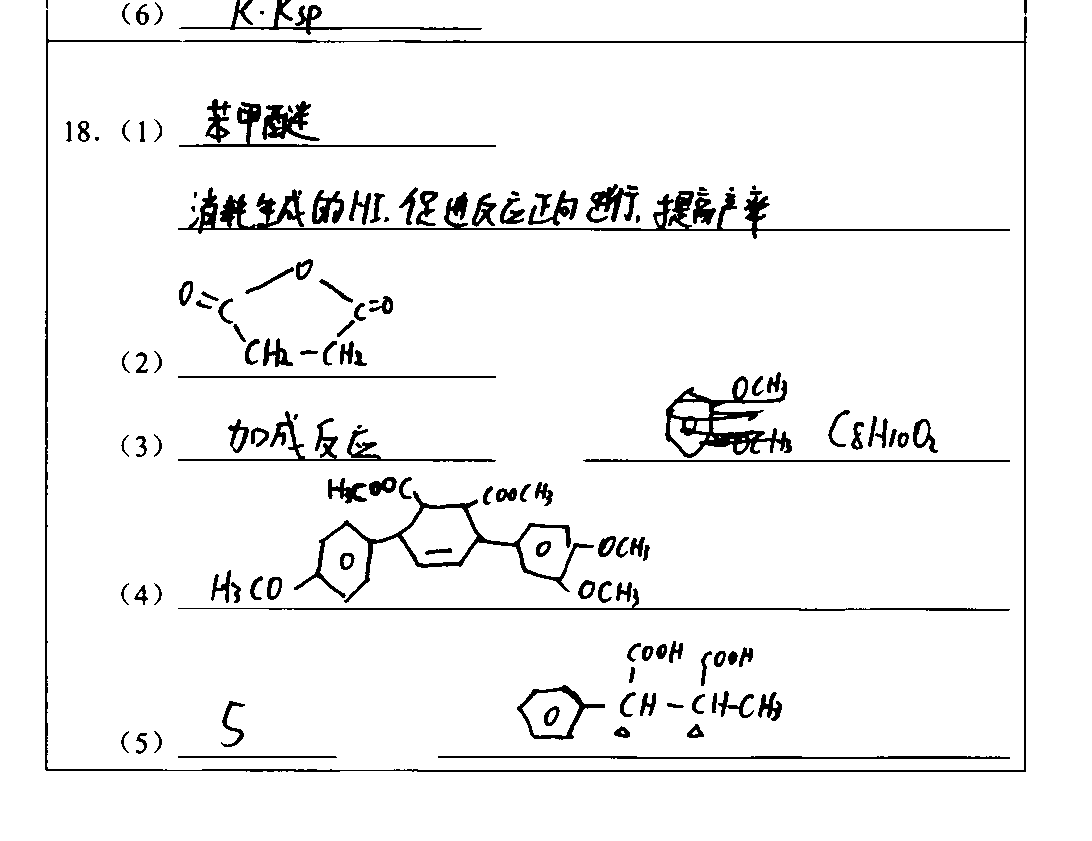 (6) K·Ksp
18.(1) 苯甲醚
消耗生成的HI.促进反应正向进行.提高产率
O
O=C C=O
(2) CH2-CH2
OCH3
(3) 加成反应 OCH3 C8H10O2
H3COOC COOCH3
OCH3
(4) H3CO OCH3
COOH COOH
CH-CH-CH3
(5) 5